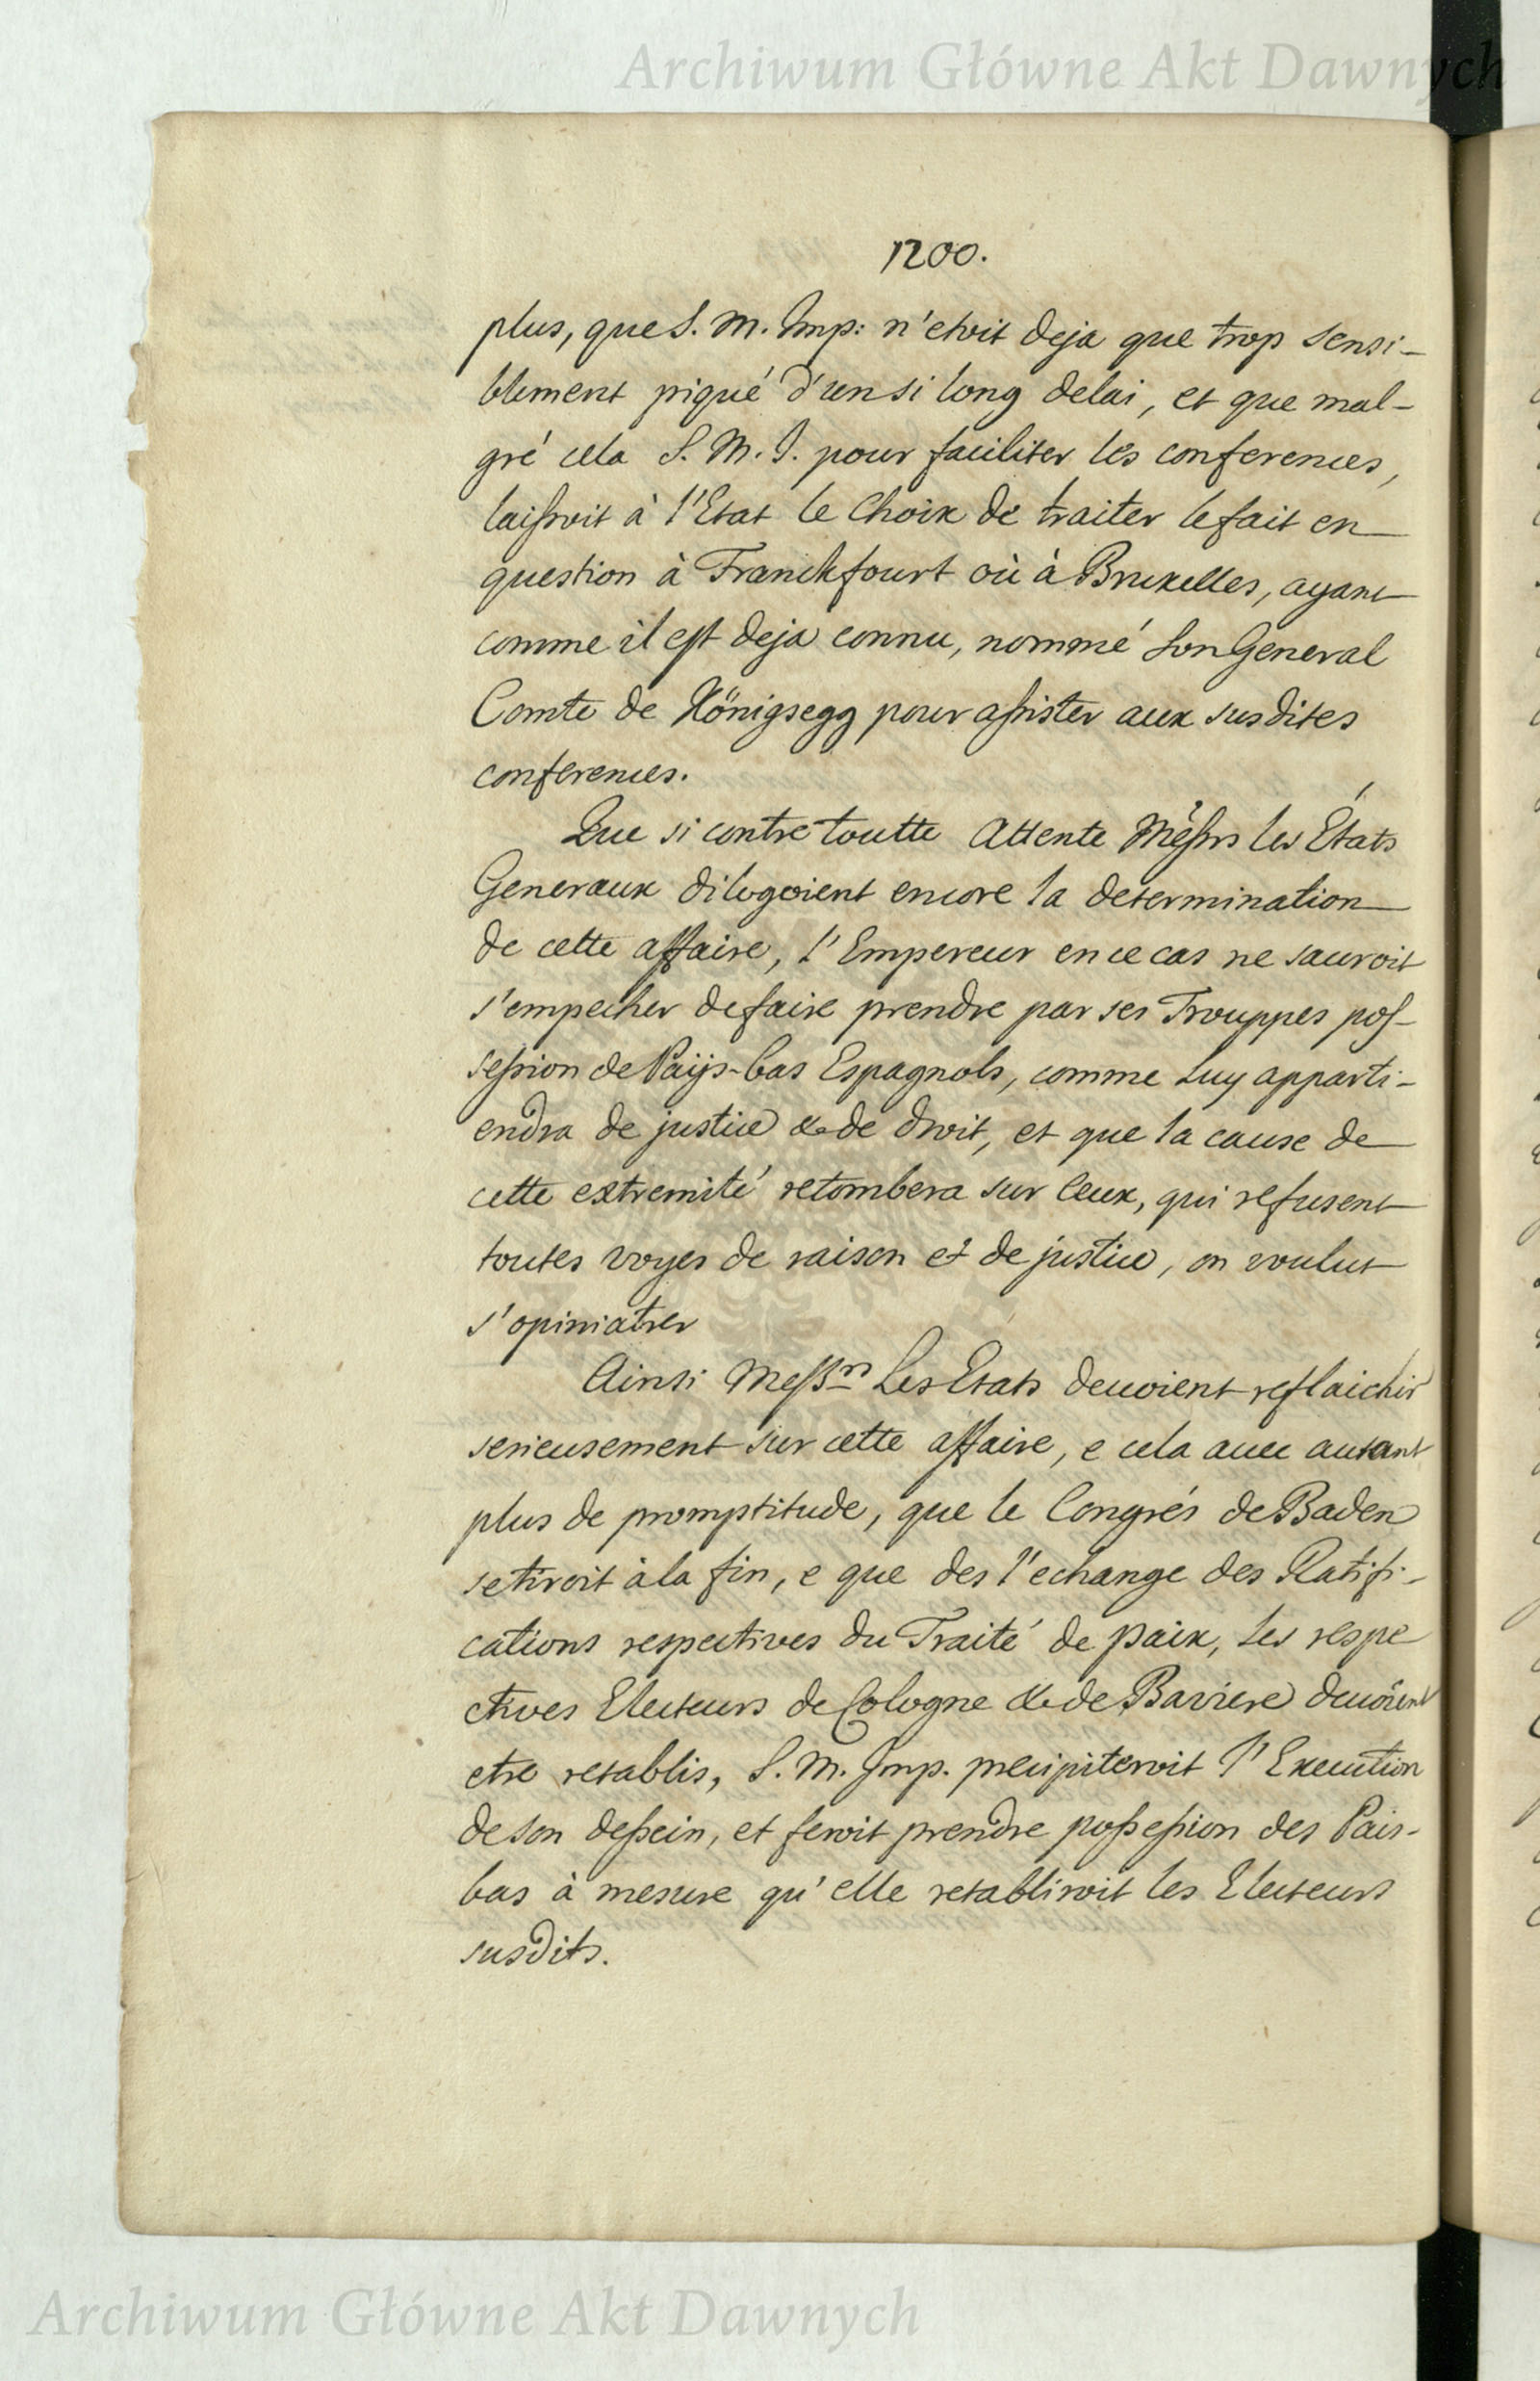 Archiwum Główne Akt Dawnych
1200.
plus, que S. M. Imp: n'etoit deja que trop sensi-
blement piqué d'un si long delai, et que mal-
gré cela S. M. I. pour faciliter les conferences,
laissoit à l'Etat le Choix de traiter le fait en
question à Franckfourt où à Bruxelles, ayant
comme il est deja connu, nommé son General
Comte de Königsegg pour assister aux susdites
conferences.
Que si contre toutte Attente Messrs les États
Generaux dilogoient encore la determination
de cette affaire, l'Empereur en ce cas ne sauroit
s'empecher de faire prendre par ses Trouppes pos-
session de Paÿs-bas Espagnols, comme Luy apparti-
endra de justice & de droit, et que la cause de
cette extremité retombera sur Ceux, qui refusent
toutes voyes de raison et de justice, on voulut
s'opiniatrer
Ainsi Messrs Les Etats devoient reflaichir
serieusement sur cette affaire, e cela avec autant
plus de promptitude, que le Congrés de Baden
se tiroit à la fin, e que des l'echange des Ratifi-
cations respectives du Traité de paix, Les respe
ctives Electeurs de Cologne & de Baviere devoient
etre retablis, S. M. Imp. precipiteroit l'Execution
de son dessein, et feroit prendre possession des Pais-
bas à mesure qu'elle retabliroit les Electeurs
susdits.
Archiwum Główne Akt Dawnych